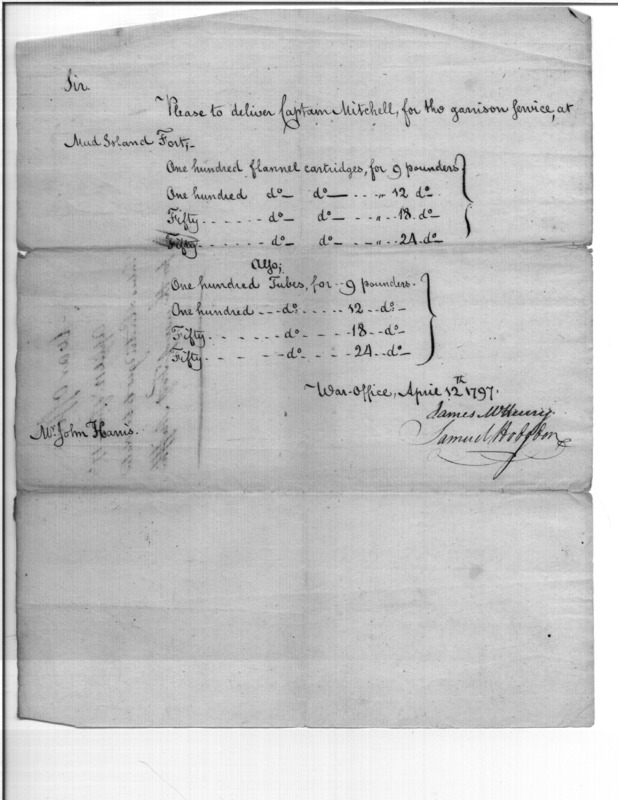 Sir.
Please to deliver Captain Mitchell, for the garrison Service, at
Mud Island Fort;-
One hundred flannel cartridges, for 9 pounders.
One hundred do— do— . . „ 12 do.
Fifty . . . . . do— do— . . „ 18. do—
Fifty . . . . . do— do— . . „ 24. do—
Also;
One hundred Tubes, for - 9 pounders.
One hundred - - do. . . . . 12 - - do—
Fifty . . . . . do. . . . . 18 - - do—
Fifty . . . . . do. . . . . 24 - - do—
War-Office, April 12th 1797.
James McHenry
Samuel Hodgdon
Mr. John Harris.